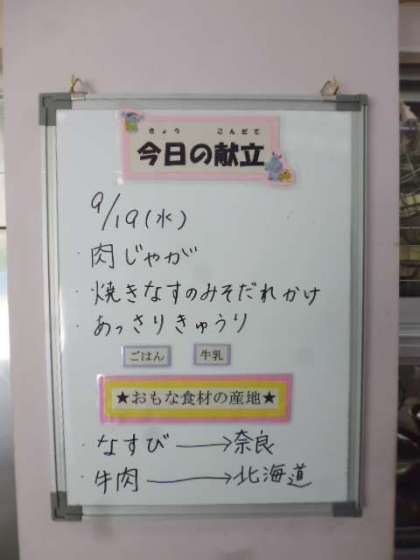 きょう こんだて
今日の献立
9/19(水)
・肉じゃが
・焼きなすのみそだれかけ
・あっさりきゅうり
ごはん 牛乳
★おもな食材の産地★
・なすび→奈良
・牛肉→北海道